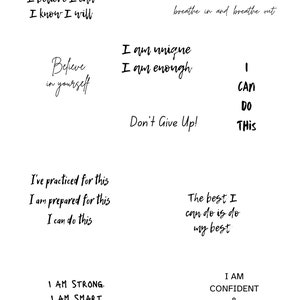 I believe I can
I know I will
breathe in and breathe out
I am unique
I am enough
Believe
in yourself
I
CAN
DO
THIS
Don't Give Up!
I've practiced for this
I am prepared for this
I can do this
The best I
can do is do
my best
I AM STRONG
I AM SMART
I AM
CONFIDENT
&